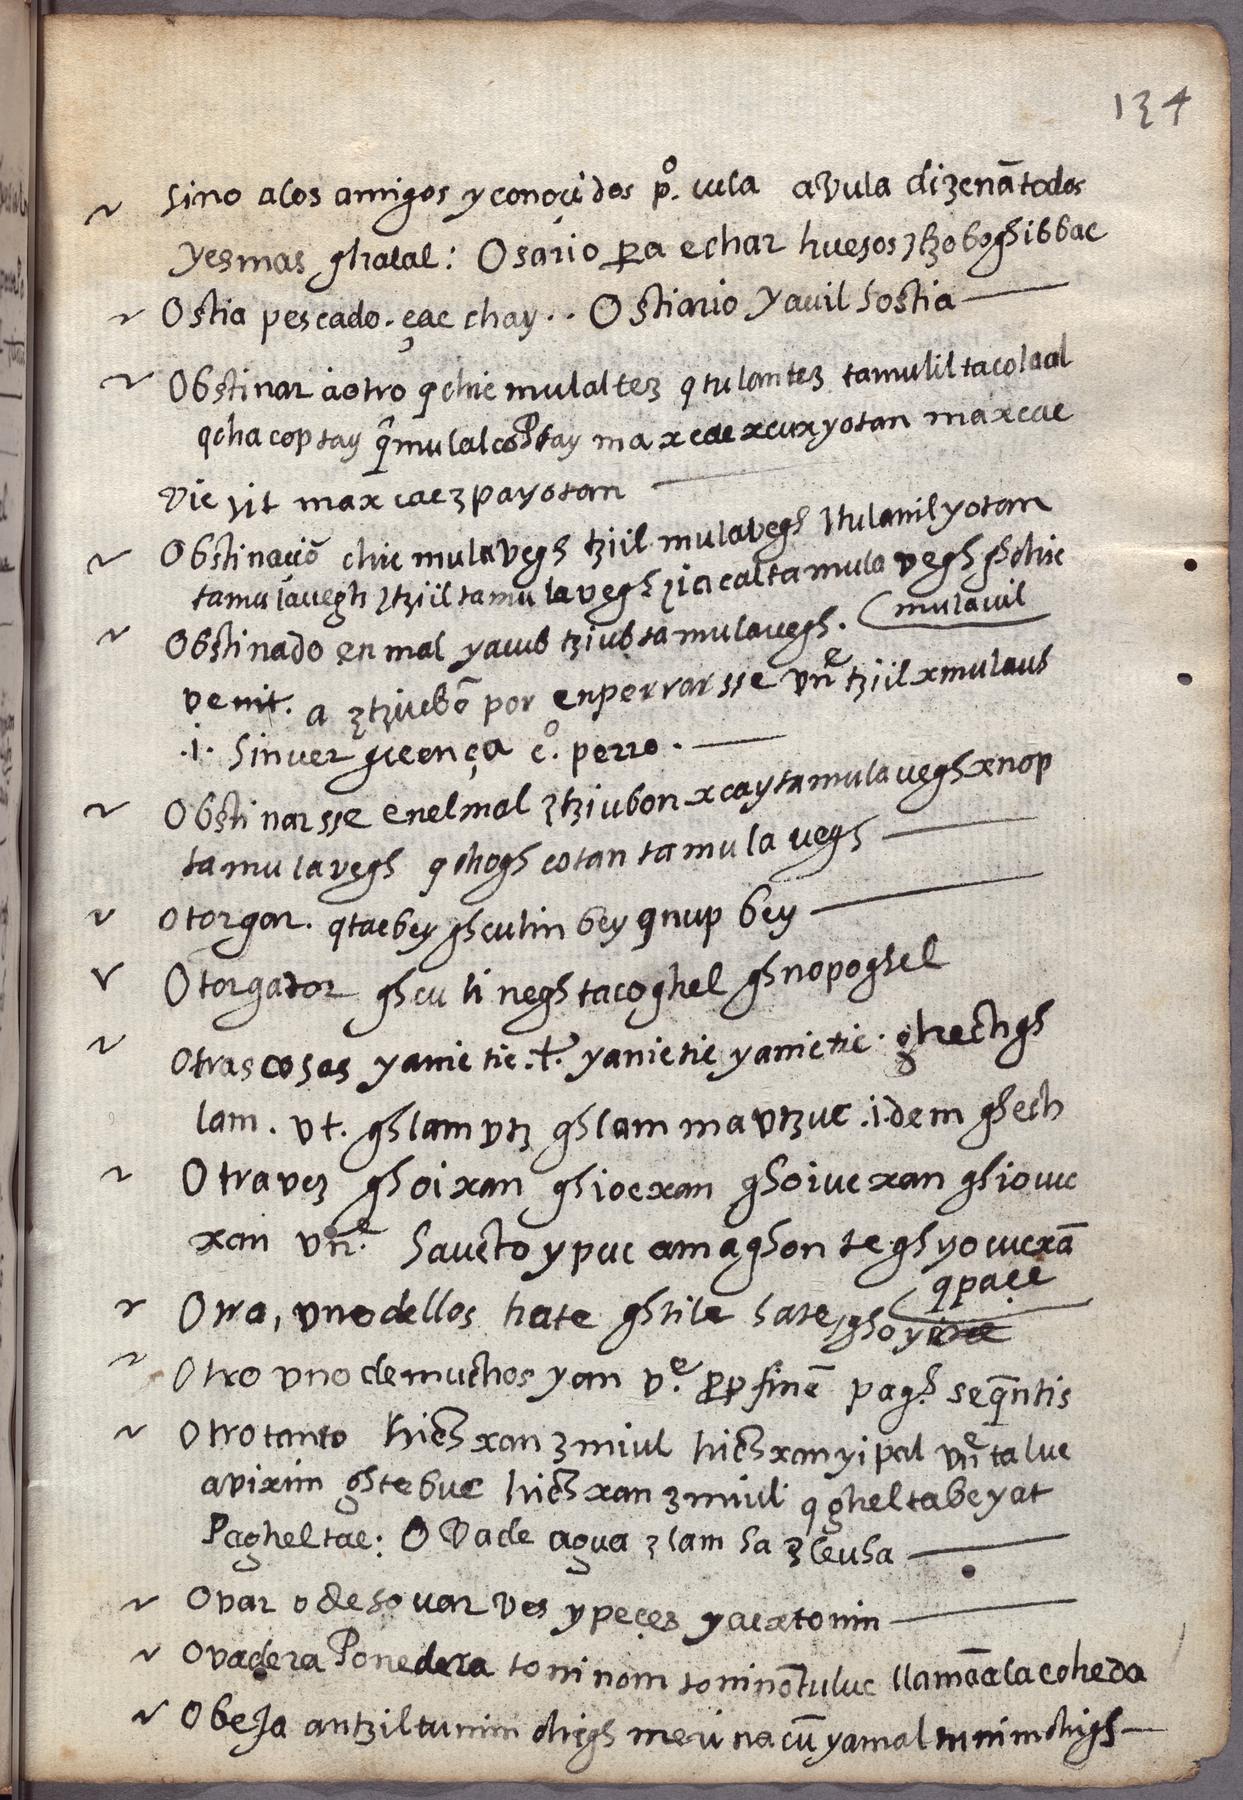 134
sino alos amigos y conoçidos po. vula avula dizenā todos
yes mas ghalal: Osario pa echar huesos ztzoboghibbac
Ostia pescado. çac chay.. Ostiario yavil hostia
Obstinar aotro qchic mulaltez qtulantez tamulil tacolaal
qchacoptay q̄mulalcoptay maxcaexcuxyotan maxcae
vic yit maxcaezpayotan
Obstinaciō chic mulavegh tziil mulavegh ztulanilyotan
tamulavegh ztziil tamulavegh zicicaltamulavegh ghchic
mulavil
Obstinado en mal yavub tziubtamulavegh.
venit. a ztziuebō por enperrarsse vne tziil xmulauh
.i. sin verguença co. perro.
Obstinarsse enelmal ztziubon xcaytamulavegh xnop
tamulavegh qchogh cotan tamulavegh
Otorgar. qtacbey ghcuhin bey qnup bey
Otorgador ghcuhinegh tacoghel ghnopoghel
otras cosas yanic tic .t. yanictic yanictic. ghechgh
lam. vt. ghlam vtz ghlam mavtzuc .idem ghech
Otra vez ghoixan ghioexan ghoiuexan ghiovuc
xan vne. hauctoypuc amaghon te ghyocucxā
qpaçe
Otra, vno dellos hate ghtile hate, ghoy
Otro vno de muchos yan ve. prop finē pagh. seqntis
Otro tanto hichxan zmiul hichxanyipal vne taluc
avixim ghtebuc hichxan zmiul qgheltabeyat
Pagheltae: O Vade agua zlam ha zleuha
Ovar o desovar ves y peçes yacxtonin
Ovadera Ponedera toninom toninōtuluc llamāala coheda
Obeja antziltunim chigh meu nacū yamal tunimchigh